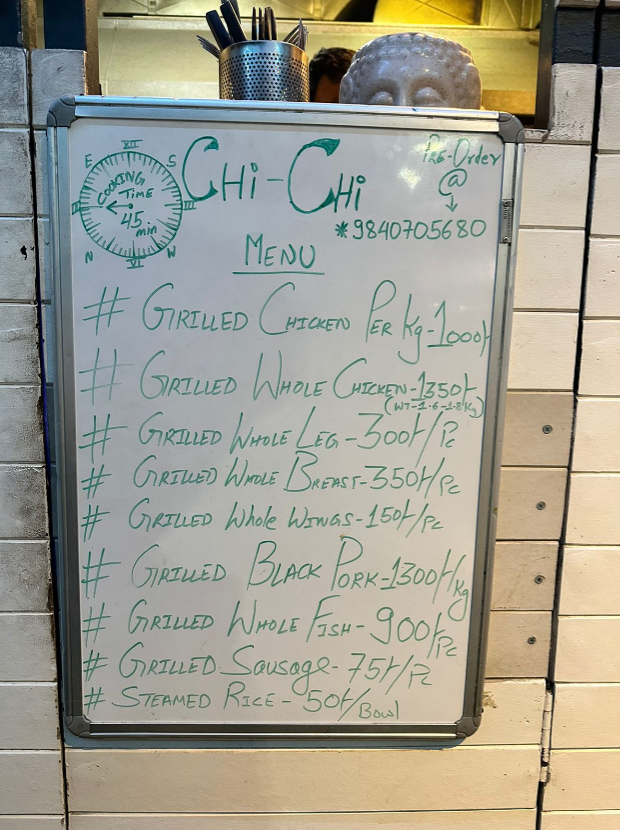 CHi-CHi
PRE-Order
@
*9840705680
E XII S
COOKING
TIME
45
min
III
N VI W
MENU
# GRILLED CHICKEN PER Kg-1000/-
# GRILLED WHOLE CHICKEN-1350/-
(WT-1.6-1.8Kg)
# GRILLED WHOLE LEG-300/-/Pc
# GRILLED WHOLE BREAST-350/-/Pc
# GRILLED Whole WINGS-150/-/Pc
# GRILLED BLACK PORK-1300/-/Kg
# GRILLED WHOLE FISH-900/-/Pc
# GRILLED Sausage-75/-/Pc
# STEAMED RICE-50/-/Bowl